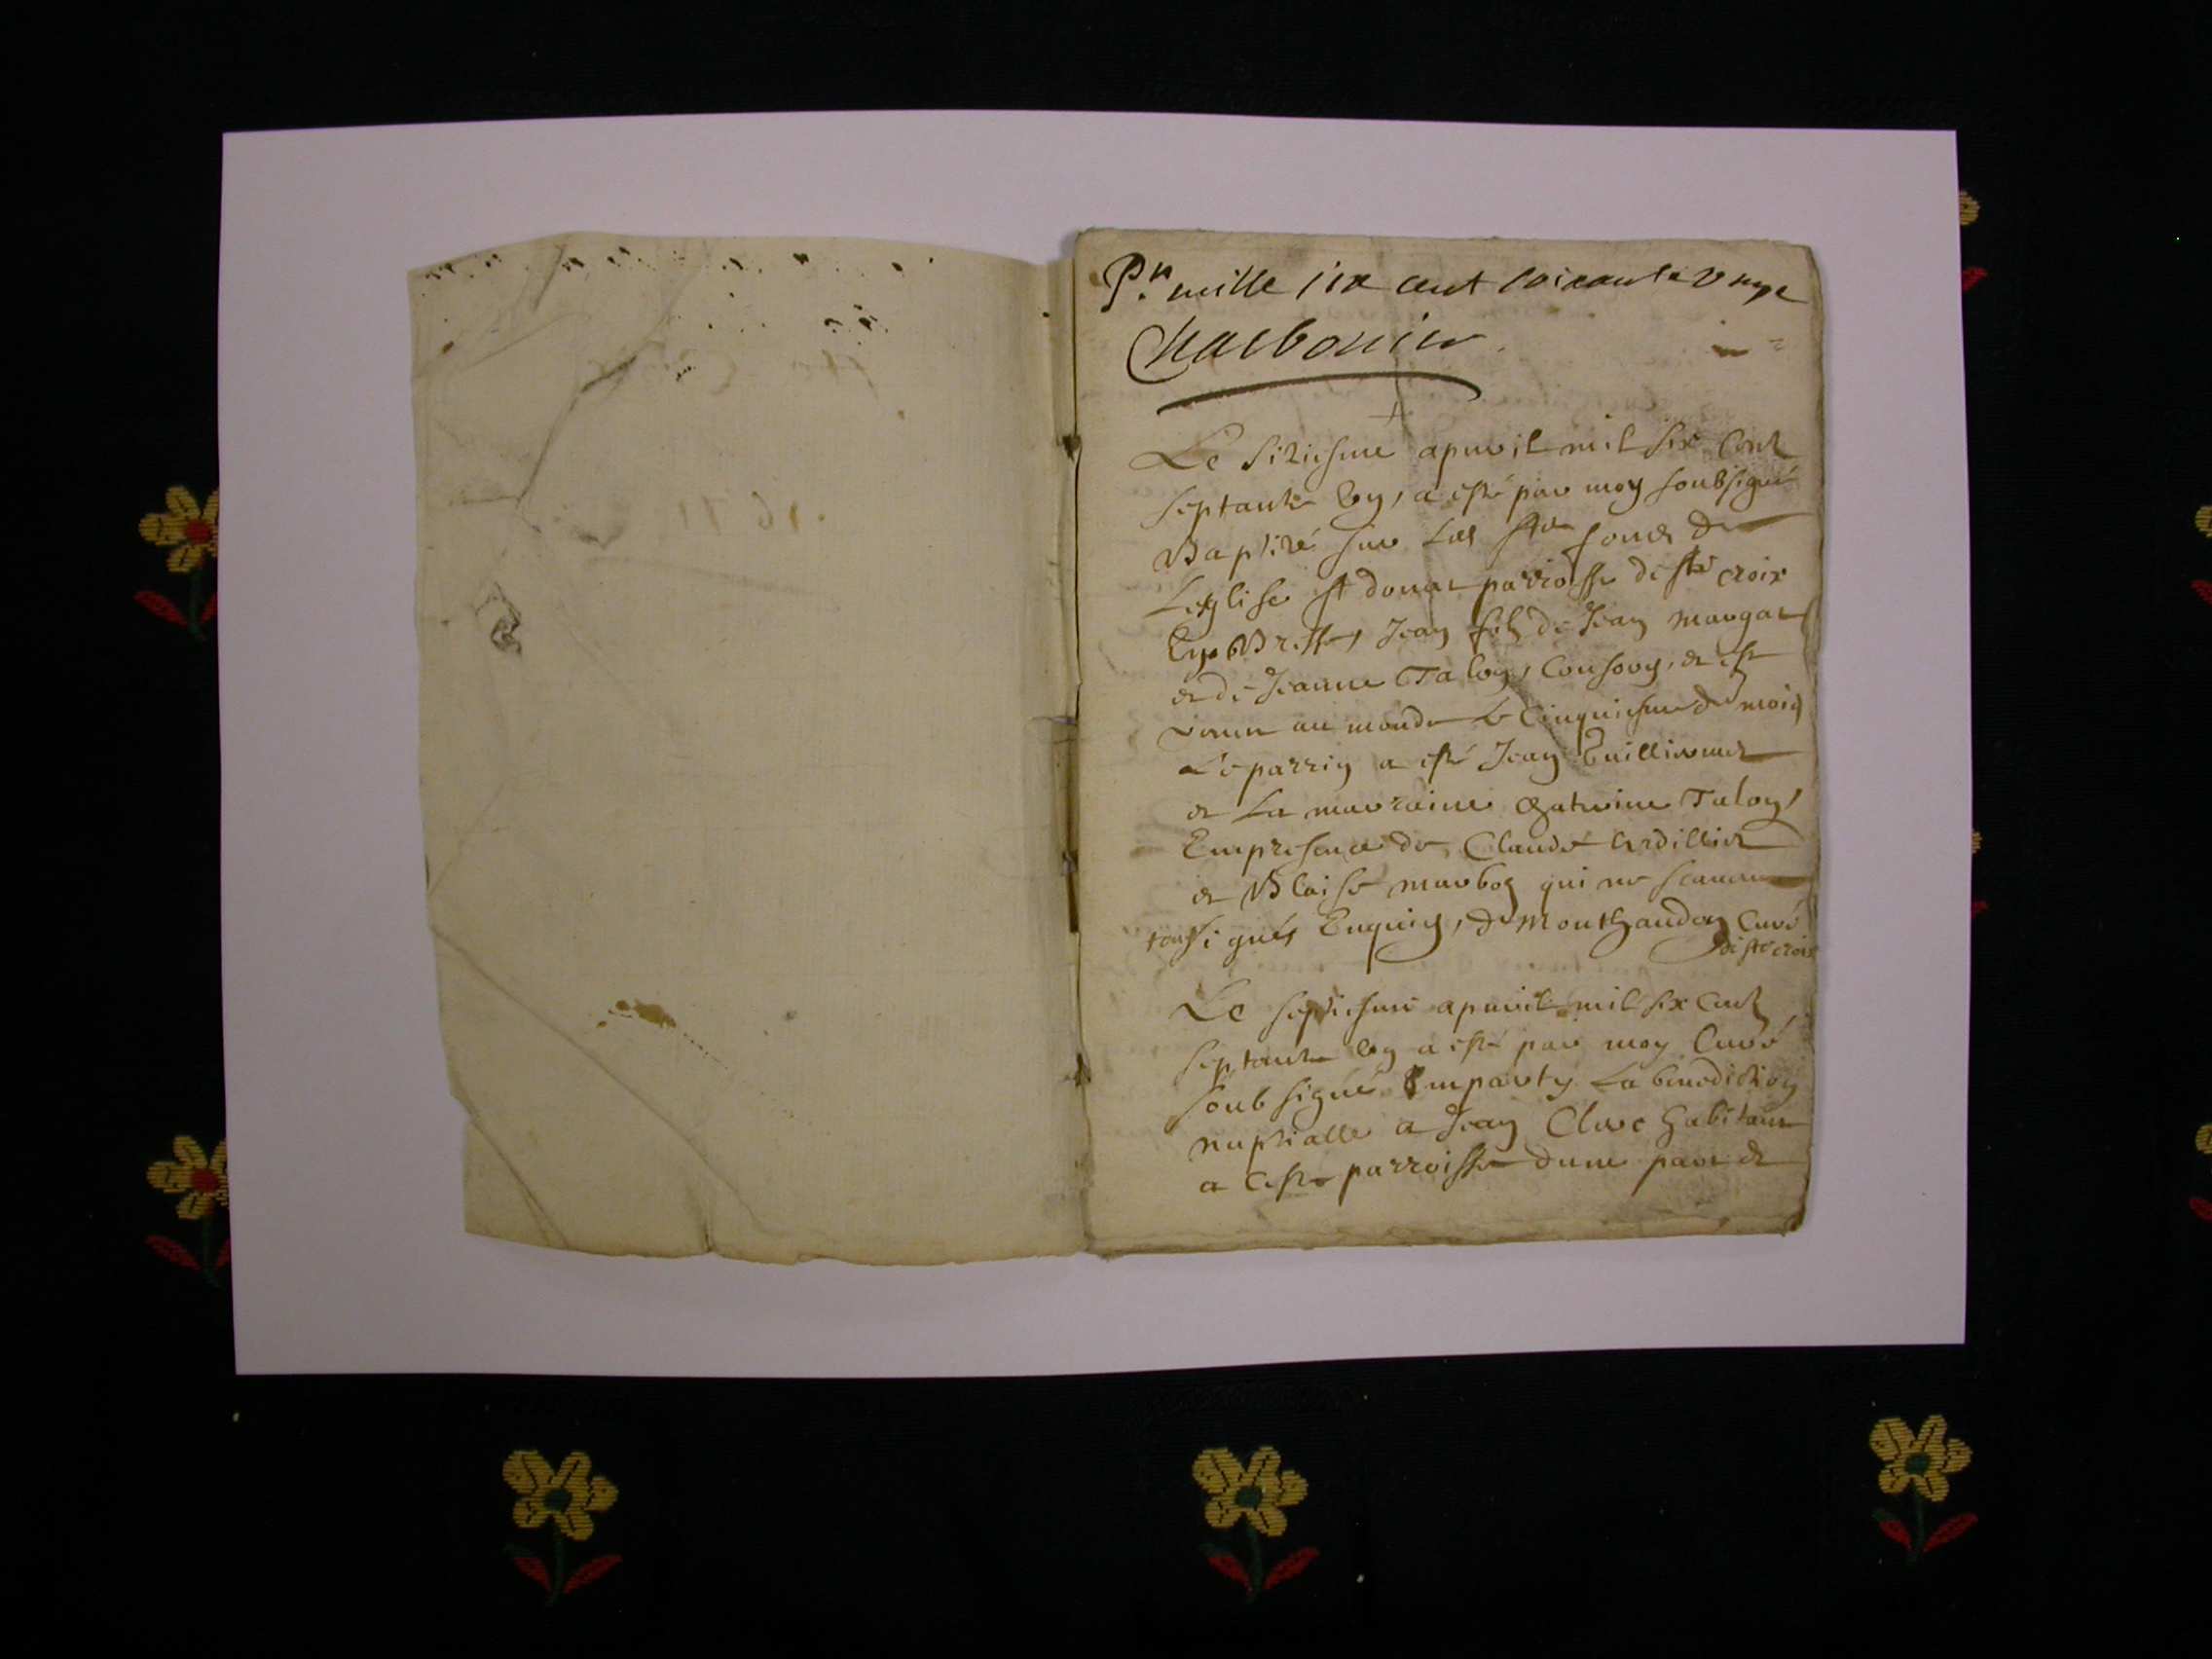 P.r mille six cent soixante unze
Charbonier
Le siziesme apuril mil six cent
septante un, a esté par moy soubsigné
Baptizé sur les stes fonds de
Leglise st donat parroisse de ste croix
En Bresse, Jean fils de Jean mangat
et de Jeanne Talon, Consors, et est
venu au monde le cinquiesme du mois
Le parrin a esté Jean Guillermet
et La marraine Catherine Talon,
En presence de Claude Ardillier
et Blaise marbos qui ne scauent
signer Enquis, de Monthaudon Curé
de ste croix
Le septiesme apuril mil six cent
septante un a esté par moy Curé
soubsigné Emparty La benediction
nuptialle a Jean Clerc habitant
a ceste parroisse dune part et
1671